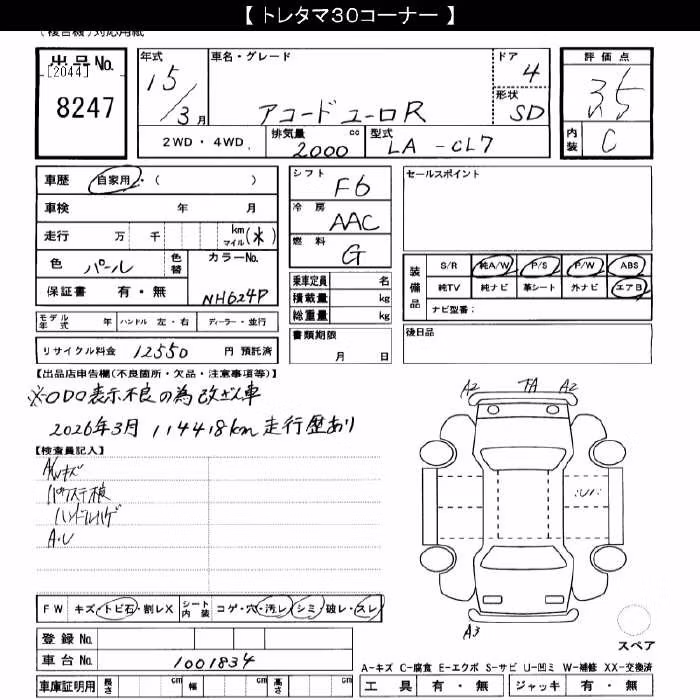 【トレタマ30コーナー】
(複合機)対応用紙
出品No.
[2044]
8247
年式
15/3月
車名・グレード
アコードユーロR
ドア
4
形状
SD
評価点
3.5
内装
C
2WD・4WD
排気量 cc
2000
型式
LA-CL7
車歴 自家用・( )
車検 年 月
走行 万 千 km マイル (※)
色 パール 色替 カラーNo. NH624P
保証書 有・無
シフト F6
冷房 AAC
燃料 G
セールスポイント
装備品
S/R 純A/W P/S P/W ABS
純TV 純ナビ 革シート 外ナビ エアB
ナビ型番:
乗車定員 名
積載量 kg
総重量 kg
モデル年式 年 ハンドル 左・右 ディーラー・並行
書類期限
月 日
後日品
リサイクル料金 12550 円 預託済
【出品店申告欄(不良箇所・欠品・注意事項等)】
※ODO表示不良の為改ざん車
2026年3月 114418km走行歴あり
【検査員記入】
A/Wキズ
パワステ不良
ハンドルハゲ
A・U
A2 TA A2
A3
スペア
FW キズ・トビ石・割レX シート内装 コゲ・穴・汚レ・シミ・破レ・スレ
登録No.
車台No. 1001834
車庫証明用 長さ cm 幅 cm 高さ cm
A-キズ C-腐食 E-エクボ S-サビ U-凹ミ W-補修 XX-交換済
工具 有・無 ジャッキ 有・無